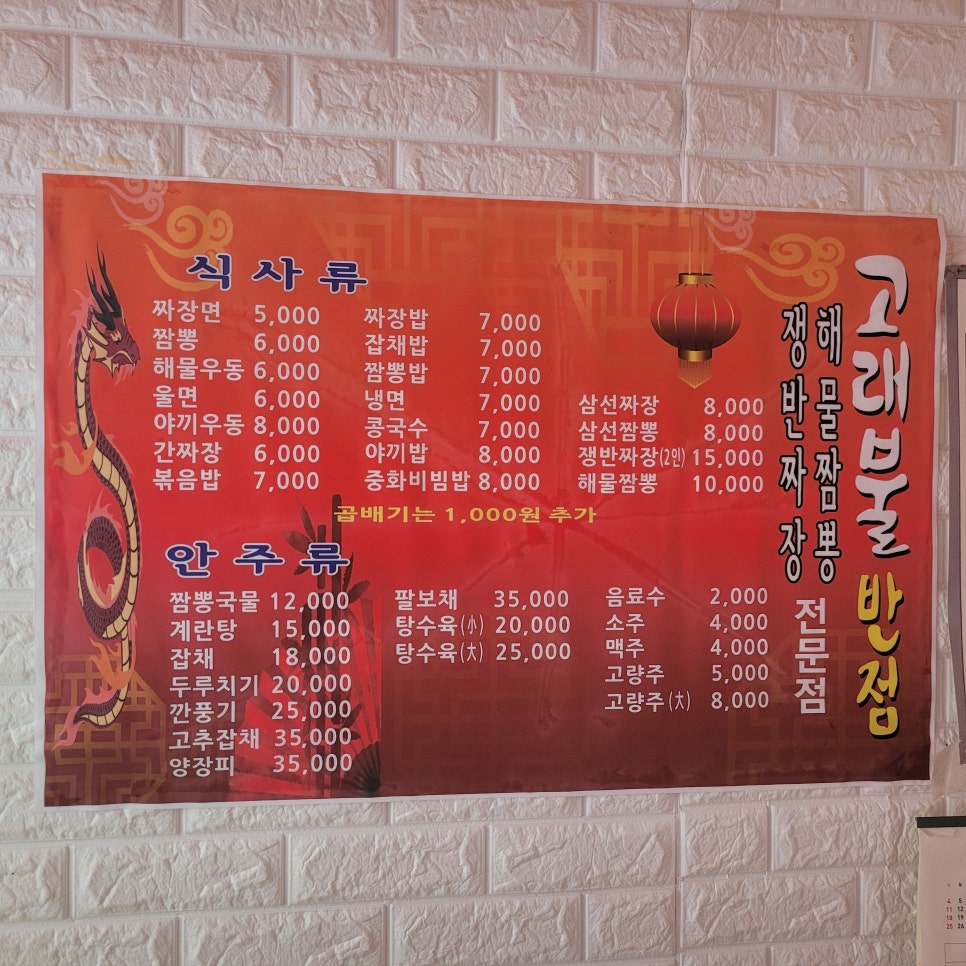 식사류
짜장면 5,000
짬뽕 6,000
해물우동 6,000
울면 6,000
야끼우동 8,000
간짜장 6,000
볶음밥 7,000
짜장밥 7,000
잡채밥 7,000
짬뽕밥 7,000
냉면 7,000
콩국수 7,000
야끼밥 8,000
중화비빔밥 8,000
삼선짜장 8,000
삼선짬뽕 8,000
쟁반짜장(2인) 15,000
해물짬뽕 10,000
곱배기는 1,000원 추가
안주류
짬뽕국물 12,000
계란탕 15,000
잡채 18,000
두루치기 20,000
깐풍기 25,000
고추잡채 35,000
양장피 35,000
팔보채 35,000
탕수육(小) 20,000
탕수육(大) 25,000
음료수 2,000
소주 4,000
맥주 4,000
고량주 5,000
고량주(大) 8,000
고래불반점
해물짬뽕
쟁반짜장
전문점
4 5
11 12
18 19
25 26